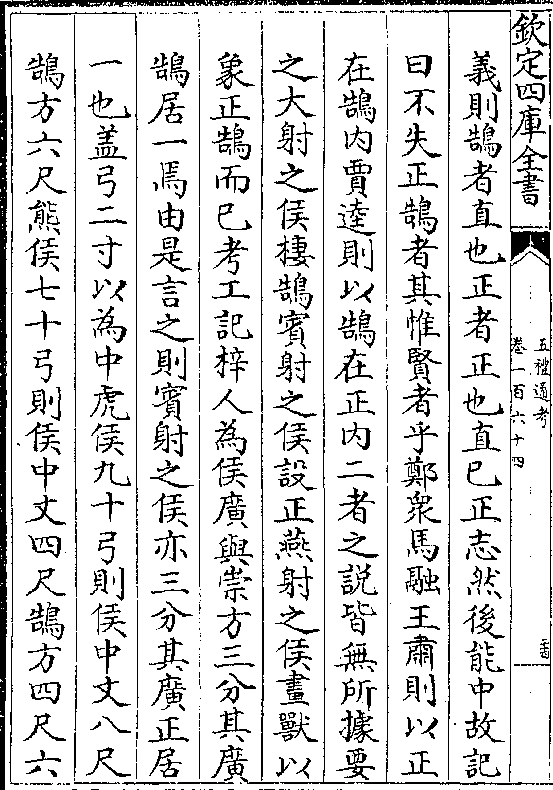 欽定四庫全書
五禮通考
卷一百六十四
義則鵠者直也正者正也直已正志然後能中故記
曰不失正鵠者其惟賢者乎鄭衆馬融王肅則以正
在鵠内賈逵則以鵠在正内二者之說皆無所據要
之大射之侯棲鵠賓射之侯設正燕射之侯畫獸以
象正鵠而已考工記梓人為侯廣與崇方三分其廣
鵠居一焉由是言之則賓射之侯亦三分其廣正居
一也蓋弓二寸以為中虎侯九十弓則侯中丈八尺
鵠方六尺熊侯七十弓則侯中丈四尺鵠方四尺六